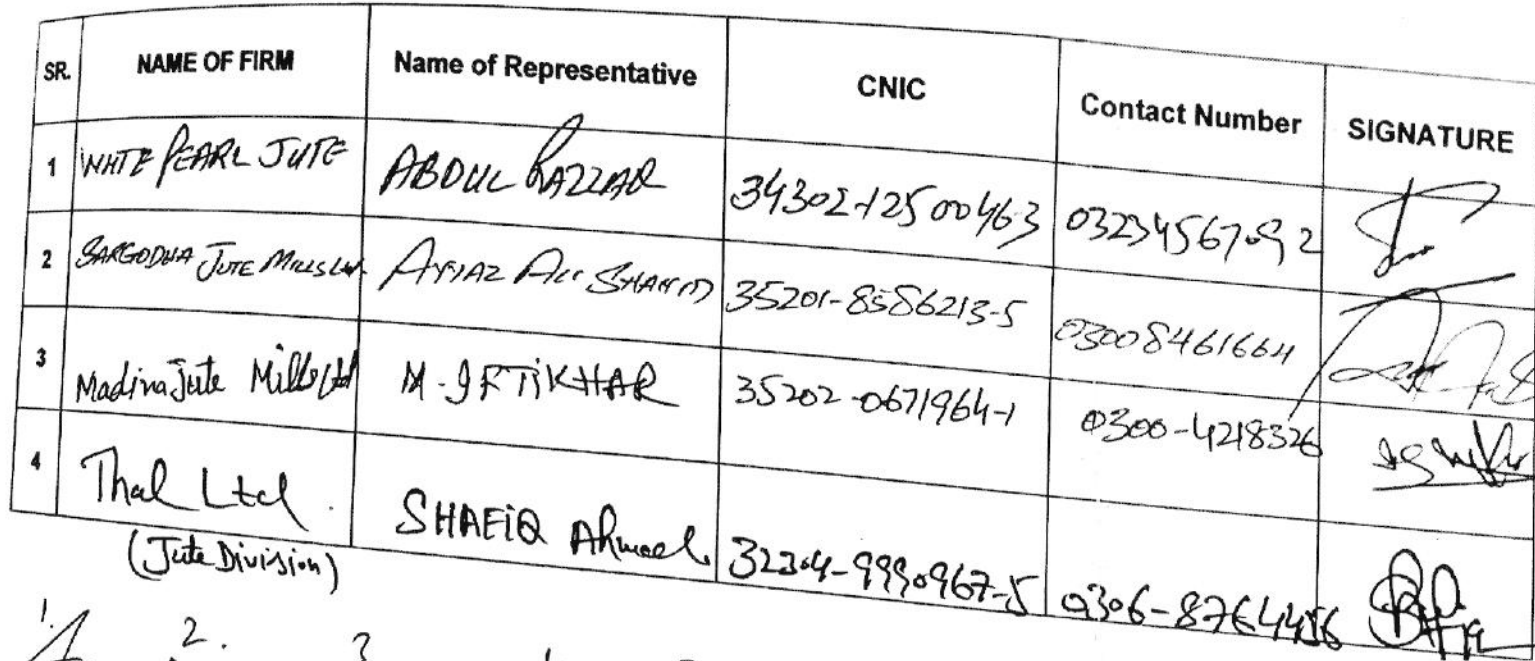 SR. NAME OF FIRM Name of Representative CNIC Contact Number SIGNATURE
1 WHTE PEARL JUTE ABDUL RAZZAQ 34302-12500463 03234567092
2 SARGODHA JUTE MILLS Ltd ALI SHAHID 35201-8586213-5 03008461664
3 Madina Jute Mills Ltd M. IFTIKHAR 35202-0671964-1 0300-4218326
4 Thal Ltd. SHAFIQ Ahmed. 32304-9990967-5 0306-8764456
(Jute Division)
1. 2. 3